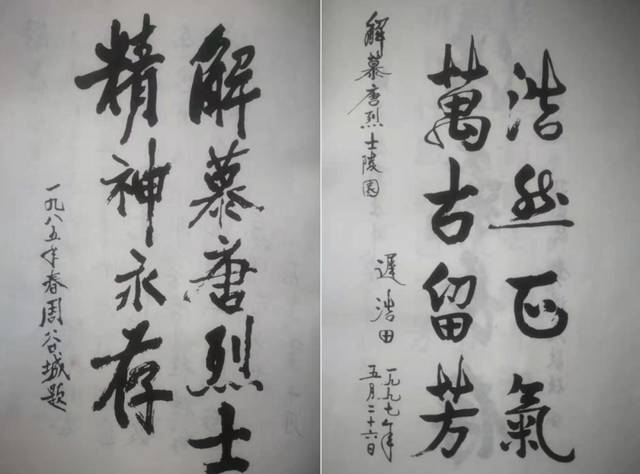 解慕唐烈士
精神永存
一九八五年春周谷城题
浩然正气
萬古留芳
解慕唐烈士陵园
遲浩田
一九九七年
五月二十六日